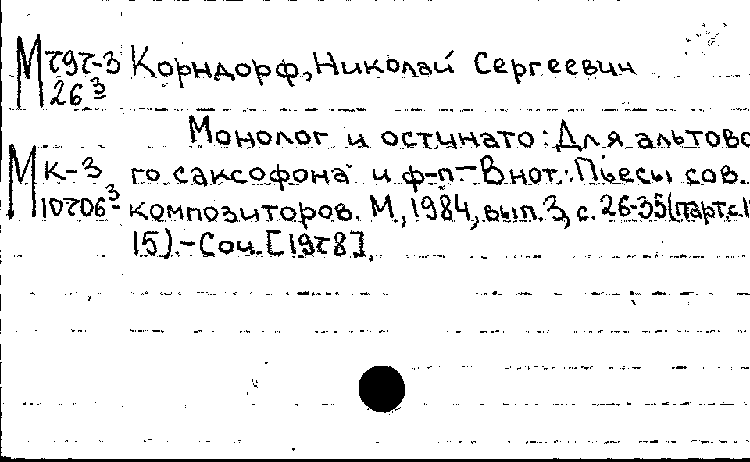 М 797-3 Корндорф, Николай Сергеевич
26³
Монолог и остинато: Для альтово
М К-3 го саксофона и ф-п.- В нот.: Пьесы сов.
10706³ композиторов. М., 1984, вып. 3, с. 26-35 (парт. с. 1
15).- Соч. [1978].